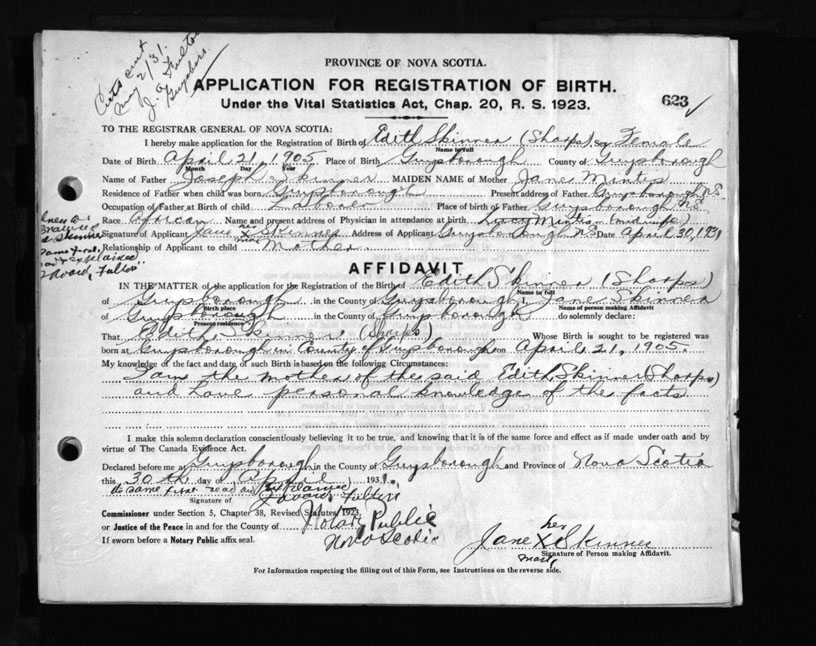 Certs sent
May 2/31.
J. A. Fulton
Guysboro.
PROVINCE OF NOVA SCOTIA.
APPLICATION FOR REGISTRATION OF BIRTH.
Under the Vital Statistics Act, Chap. 20, R. S. 1923.
623
TO THE REGISTRAR GENERAL OF NOVA SCOTIA:
I hereby make application for the Registration of Birth of Edith Skinner (Sharpe) Sex Female
Name in full
Date of Birth April 21, 1905 Place of Birth Guysborough County of Guysborough
Month Day Year
Name of Father Joseph Skinner MAIDEN NAME of Mother Jane Mintis
Residence of Father when child was born Guysborough Present address of Father Guysborough N.S.
Occupation of Father at Birth of child Laborer Place of birth of Father Guysborough N.S.
Race African Name and present address of Physician in attendance at birth Lucy Mintis (midwife)
Signature of Applicant Jane her X mark Skinner Address of Applicant Guysborough N.S. Date April 30, 1931
Relationship of Applicant to child Mother
Skinner
same first
read & explained
Fulton"
AFFIDAVIT
IN THE MATTER of the application for the Registration of the Birth of Edith Skinner (Sharpe)
Name in full
of Guysborough in the County of Guysborough I, Jane Skinner
Birth place Name of person making Affidavit
of Guysborough in the County of Guysborough do solemnly declare:
Present residence
That Edith Skinner (Sharpe) Whose Birth is sought to be registered was
born at Guysborough in County of Guysborough on April 21, 1905.
My knowledge of the fact and date of such Birth is based on the following Circumstances:
I am the mother of the said Edith Skinner (Sharpe)
and have personal knowledge of the facts
I make this solemn declaration conscientiously believing it to be true, and knowing that it is of the same force and effect as if made under oath and by
virtue of The Canada Evidence Act.
Declared before me at Guysborough in the County of Guysborough and Province of Nova Scotia
this 30th day of April 1931.
the same first read and explained
Signature of Fulton
Commissioner under Section 5, Chapter 38, Revised Statutes 1923,
or Justice of the Peace in and for the County of Notary Public
If sworn before a Notary Public affix seal. Nova Scotia
Jane her X mark Skinner
Signature of Person making Affidavit.
For Information respecting the filling out of this Form, see Instructions on the reverse side.